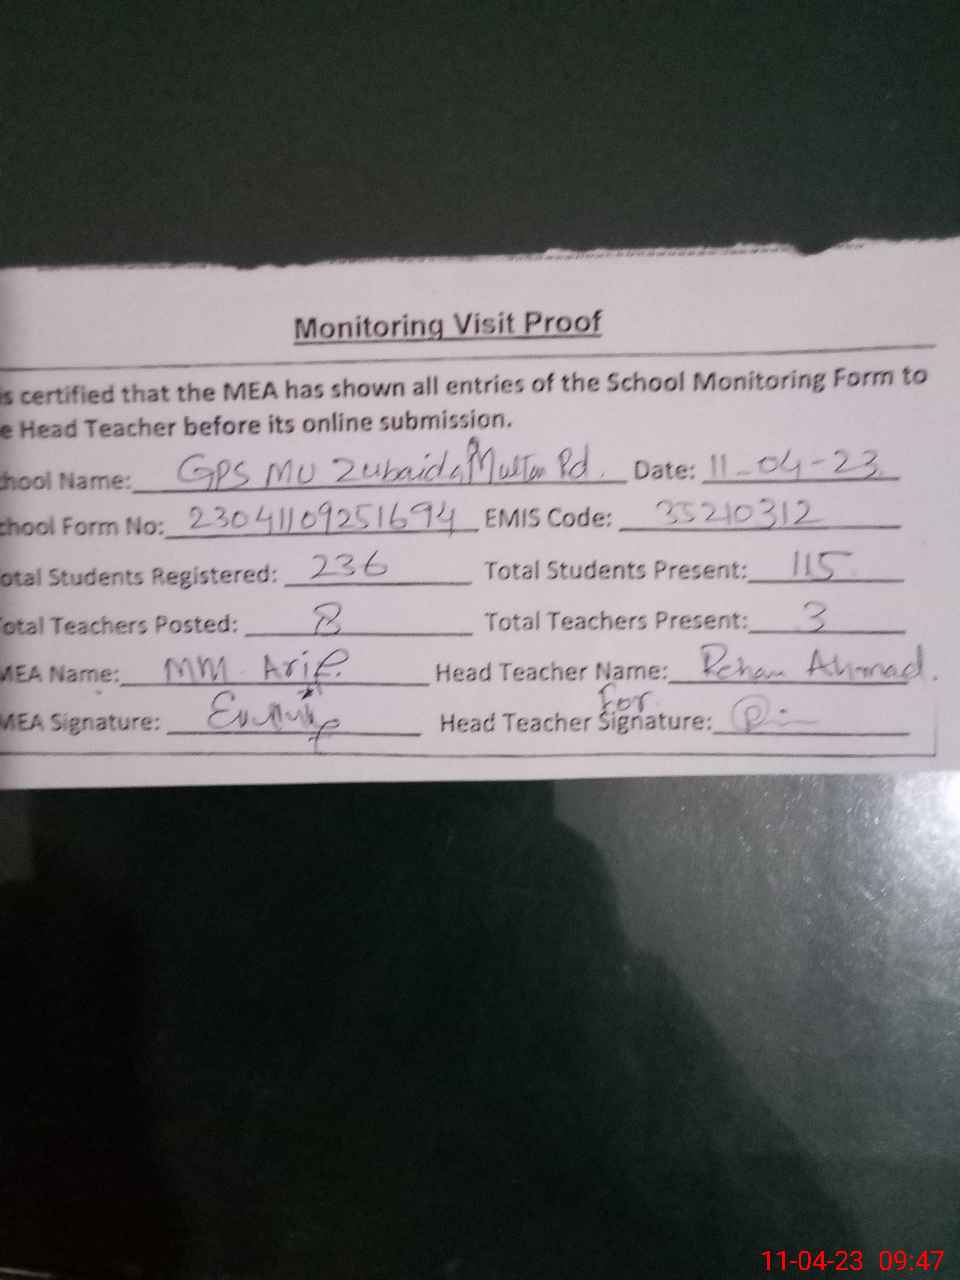 Monitoring Visit Proof
is certified that the MEA has shown all entries of the School Monitoring Form to
e Head Teacher before its online submission.
chool Name: GPS MU Zubaida Multan Rd. Date: 11-04-23
chool Form No: 23041109251694 EMIS Code: 35210312
otal Students Registered: 236 Total Students Present: 115
otal Teachers Posted: 8 Total Teachers Present: 3
MEA Name: MM. Arif. Head Teacher Name: Rehan Ahmad.
MEA Signature: for Head Teacher Signature:
11-04-23 09:47